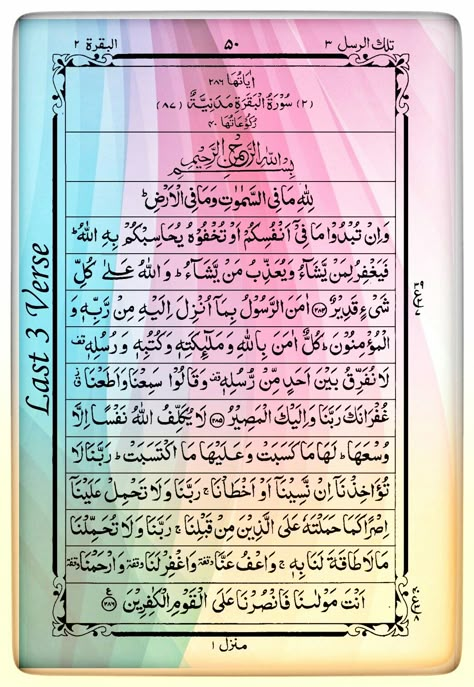 تلك الرسل ۳ ۵۰ البقرة ۲
اٰيَاتُهَا ۲۸۶
(۲) سُوْرَةُ الْبَقَرَةِ مَدَنِيَّةٌ (۸۷)
رُكُوْعَاتُهَا ۴۰
بِسْمِ اللّٰهِ الرَّحْمٰنِ الرَّحِيْمِ
لِلّٰهِ مَا فِى السَّمٰوٰتِ وَمَا فِى الْاَرْضِ ؕ
وَاِنْ تُبْدُوْا مَا فِىْٓ اَنْفُسِكُمْ اَوْ تُخْفُوْهُ يُحَاسِبْكُمْ بِهِ اللّٰهُ ؕ
فَيَغْفِرُ لِمَنْ يَّشَآءُ وَيُعَذِّبُ مَنْ يَّشَآءُ ؕ وَاللّٰهُ عَلٰى كُلِّ
شَىْءٍ قَدِيْرٌ ﴿۲۸۴﴾ اٰمَنَ الرَّسُوْلُ بِمَآ اُنْزِلَ اِلَيْهِ مِنْ رَّبِّهٖ وَ
الْمُؤْمِنُوْنَ ؕ كُلٌّ اٰمَنَ بِاللّٰهِ وَمَلٰٓئِكَتِهٖ وَكُتُبِهٖ وَرُسُلِهٖ قف
لَا نُفَرِّقُ بَيْنَ اَحَدٍ مِّنْ رُّسُلِهٖ قف وَقَالُوْا سَمِعْنَا وَاَطَعْنَا
غُفْرَانَكَ رَبَّنَا وَاِلَيْكَ الْمَصِيْرُ ﴿۲۸۵﴾ لَا يُكَلِّفُ اللّٰهُ نَفْسًا اِلَّا
وُسْعَهَا ؕ لَهَا مَا كَسَبَتْ وَعَلَيْهَا مَا اكْتَسَبَتْ ؕ رَبَّنَا لَا
تُؤَاخِذْنَآ اِنْ نَّسِيْنَآ اَوْ اَخْطَاْنَا ۚ رَبَّنَا وَلَا تَحْمِلْ عَلَيْنَآ
اِصْرًا كَمَا حَمَلْتَهٗ عَلَى الَّذِيْنَ مِنْ قَبْلِنَا ۚ رَبَّنَا وَلَا تُحَمِّلْنَا
مَا لَا طَاقَةَ لَنَا بِهٖ ۚ وَاعْفُ عَنَّا وقفة وَاغْفِرْ لَنَا وقفة وَارْحَمْنَا وقفة
اَنْتَ مَوْلٰىنَا فَانْصُرْنَا عَلَى الْقَوْمِ الْكٰفِرِيْنَ ﴿۲۸۶﴾
منزل ۱
Last 3 Verse